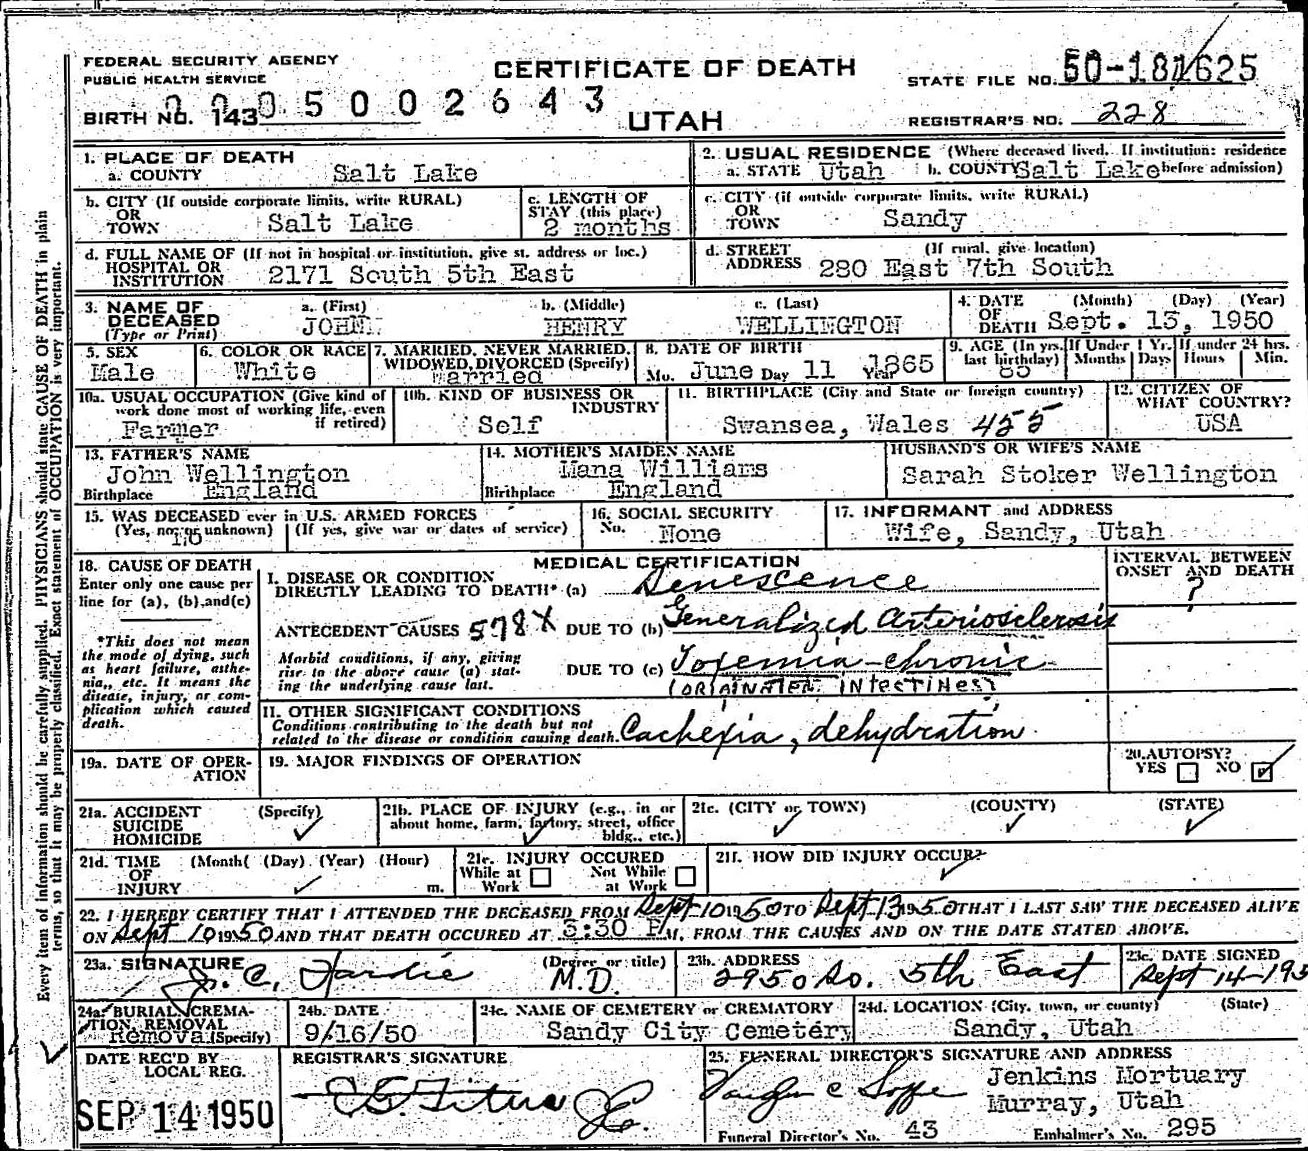 FEDERAL SECURITY AGENCY
PUBLIC HEALTH SERVICE
CERTIFICATE OF DEATH
STATE FILE NO. 50-181625
BIRTH NO. 143 0005002643
UTAH
REGISTRAR'S NO. 228
1. PLACE OF DEATH
a. COUNTY Salt Lake
2. USUAL RESIDENCE (Where deceased lived. If institution: residence
a. STATE Utah b. COUNTY Salt Lake before admission)
b. CITY (If outside corporate limits, write RURAL)
OR
TOWN Salt Lake
c. LENGTH OF
STAY (this place)
2 months
c. CITY (if outside corporate limits, write RURAL)
OR
TOWN Sandy
d. FULL NAME OF (If not in hospital or institution, give st. address or loc.)
HOSPITAL OR
INSTITUTION 2171 South 5th East
d. STREET (If rural, give location)
ADDRESS 280 East 7th South
3. NAME OF
DECEASED
(Type or Print)
a. (First) b. (Middle) c. (Last)
JOHN HENRY WELLINGTON
4. DATE (Month) (Day) (Year)
OF
DEATH Sept. 13, 1950
5. SEX
Male
6. COLOR OR RACE
White
7. MARRIED, NEVER MARRIED,
WIDOWED, DIVORCED (Specify)
Married
8. DATE OF BIRTH
Mo. June Day 11 Year 1865
9. AGE (In yrs. last birthday) 85
If Under 1 Yr. Months Days
If under 24 hrs. Hours Min.
10a. USUAL OCCUPATION (Give kind of
work done most of working life, even
if retired)
Farmer
10b. KIND OF BUSINESS OR
INDUSTRY
Self
11. BIRTHPLACE (City and State or foreign country)
Swansea, Wales 455
12. CITIZEN OF
WHAT COUNTRY?
USA
13. FATHER'S NAME
John Wellington
Birthplace England
14. MOTHER'S MAIDEN NAME
Mana Williams
Birthplace England
HUSBAND'S OR WIFE'S NAME
Sarah Stoker Wellington
15. WAS DECEASED ever in U.S. ARMED FORCES
(Yes, no, or unknown) (If yes, give war or dates of service)
no
16. SOCIAL SECURITY
No. None
17. INFORMANT and ADDRESS
Wife, Sandy, Utah
18. CAUSE OF DEATH
Enter only one cause per
line for (a), (b), and (c)
*This does not mean
the mode of dying, such
as heart failure, asthe-
nia,, etc. It means the
disease, injury, or com-
plication which caused
death.
MEDICAL CERTIFICATION
I. DISEASE OR CONDITION
DIRECTLY LEADING TO DEATH* (a) Senescence
ANTECEDENT CAUSES 578X DUE TO (b) Generalized Arteriosclerosis
Morbid conditions, if any, giving
rise to the above cause (a) stat-
ing the underlying cause last.
DUE TO (c) Toxemia - chronic
(ORIGINATED INTESTINES)
INTERVAL BETWEEN
ONSET AND DEATH
?
II. OTHER SIGNIFICANT CONDITIONS
Conditions contributing to the death but not
related to the disease or condition causing death. Cachexia, dehydration
19a. DATE OF OPER-
ATION
19. MAJOR FINDINGS OF OPERATION
20. AUTOPSY?
YES NO ✓
21a. ACCIDENT (Specify)
SUICIDE
HOMICIDE ✓
21b. PLACE OF INJURY (e.g., in or
about home, farm, factory, street, office
bldg., etc.)
21c. (CITY or TOWN) (COUNTY) (STATE)
✓ ✓ ✓
21d. TIME (Month( (Day) (Year) (Hour)
OF
INJURY ✓ m.
21e. INJURY OCCURED
While at Work Not While at Work
21f. HOW DID INJURY OCCUR?
✓
22. I HEREBY CERTIFY THAT I ATTENDED THE DECEASED FROM Sept 10 1950 TO Sept 13 1950 THAT I LAST SAW THE DECEASED ALIVE
ON Sept 10 1950 AND THAT DEATH OCCURED AT 3:30 P M, FROM THE CAUSES AND ON THE DATE STATED ABOVE.
23a. SIGNATURE (Degree or title)
J. C. Hardie M.D.
23b. ADDRESS
2950 So. 5th East
23c. DATE SIGNED
Sept 14-195
24a. BURIAL, CREMA-
TION, REMOVAL
Removal (Specify)
24b. DATE
9/16/50
24c. NAME OF CEMETERY or CREMATORY
Sandy City Cemetery
24d. LOCATION (City, town, or county) (State)
Sandy, Utah
DATE REC'D BY
LOCAL REG.
SEP 14 1950
REGISTRAR'S SIGNATURE
25. FUNERAL DIRECTOR'S SIGNATURE AND ADDRESS
Jenkins Mortuary
Murray, Utah
Funeral Director's No. 43 Embalmer's No. 295
Every item of information should be carefully supplied. PHYSICIANS should state CAUSE OF DEATH in plain
terms, so that it may be properly classified. Exact statement of OCCUPATION is very important.